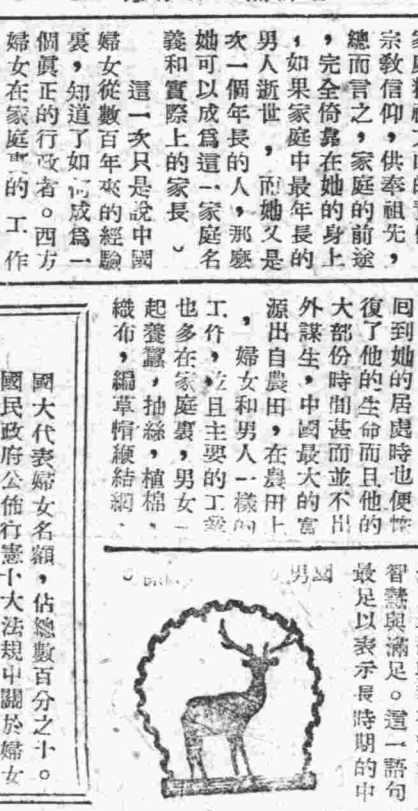 宗教信仰,供奉祖先,
總而言之,家庭的前途
,完全倚靠在她的身上
,如果家庭中最年長的
男人逝世,而她又是
次一個年長的人,那麽
她可以成爲這一家庭名
義和實際上的家長。
這一次只是說中國
婦女從數百年來的經驗
裏,知道了如何成爲一
個眞正的行政者。西方
婦女在家庭裏的工作
囘到她的居處時也便恢
復了他的生命而且他的
大部份時間甚而並不出
外謀生,中國最大的富
源出自農田,在農田上
,婦女和男人一樣的
工作,並且主要的工業
也多在家庭裏,男女一
起養蠶,抽絲,植棉,
織布,編草帽鞭結網,
智慧與滿足。這一語句
最足以表示長時期的中
國男
國大代表婦女名額,佔總數百分之十。
國民政府公佈行憲十大法規中關於婦女